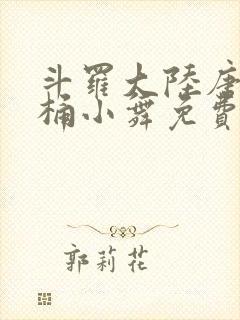 斗罗大陸唐
桶小舞免費
郭莉花